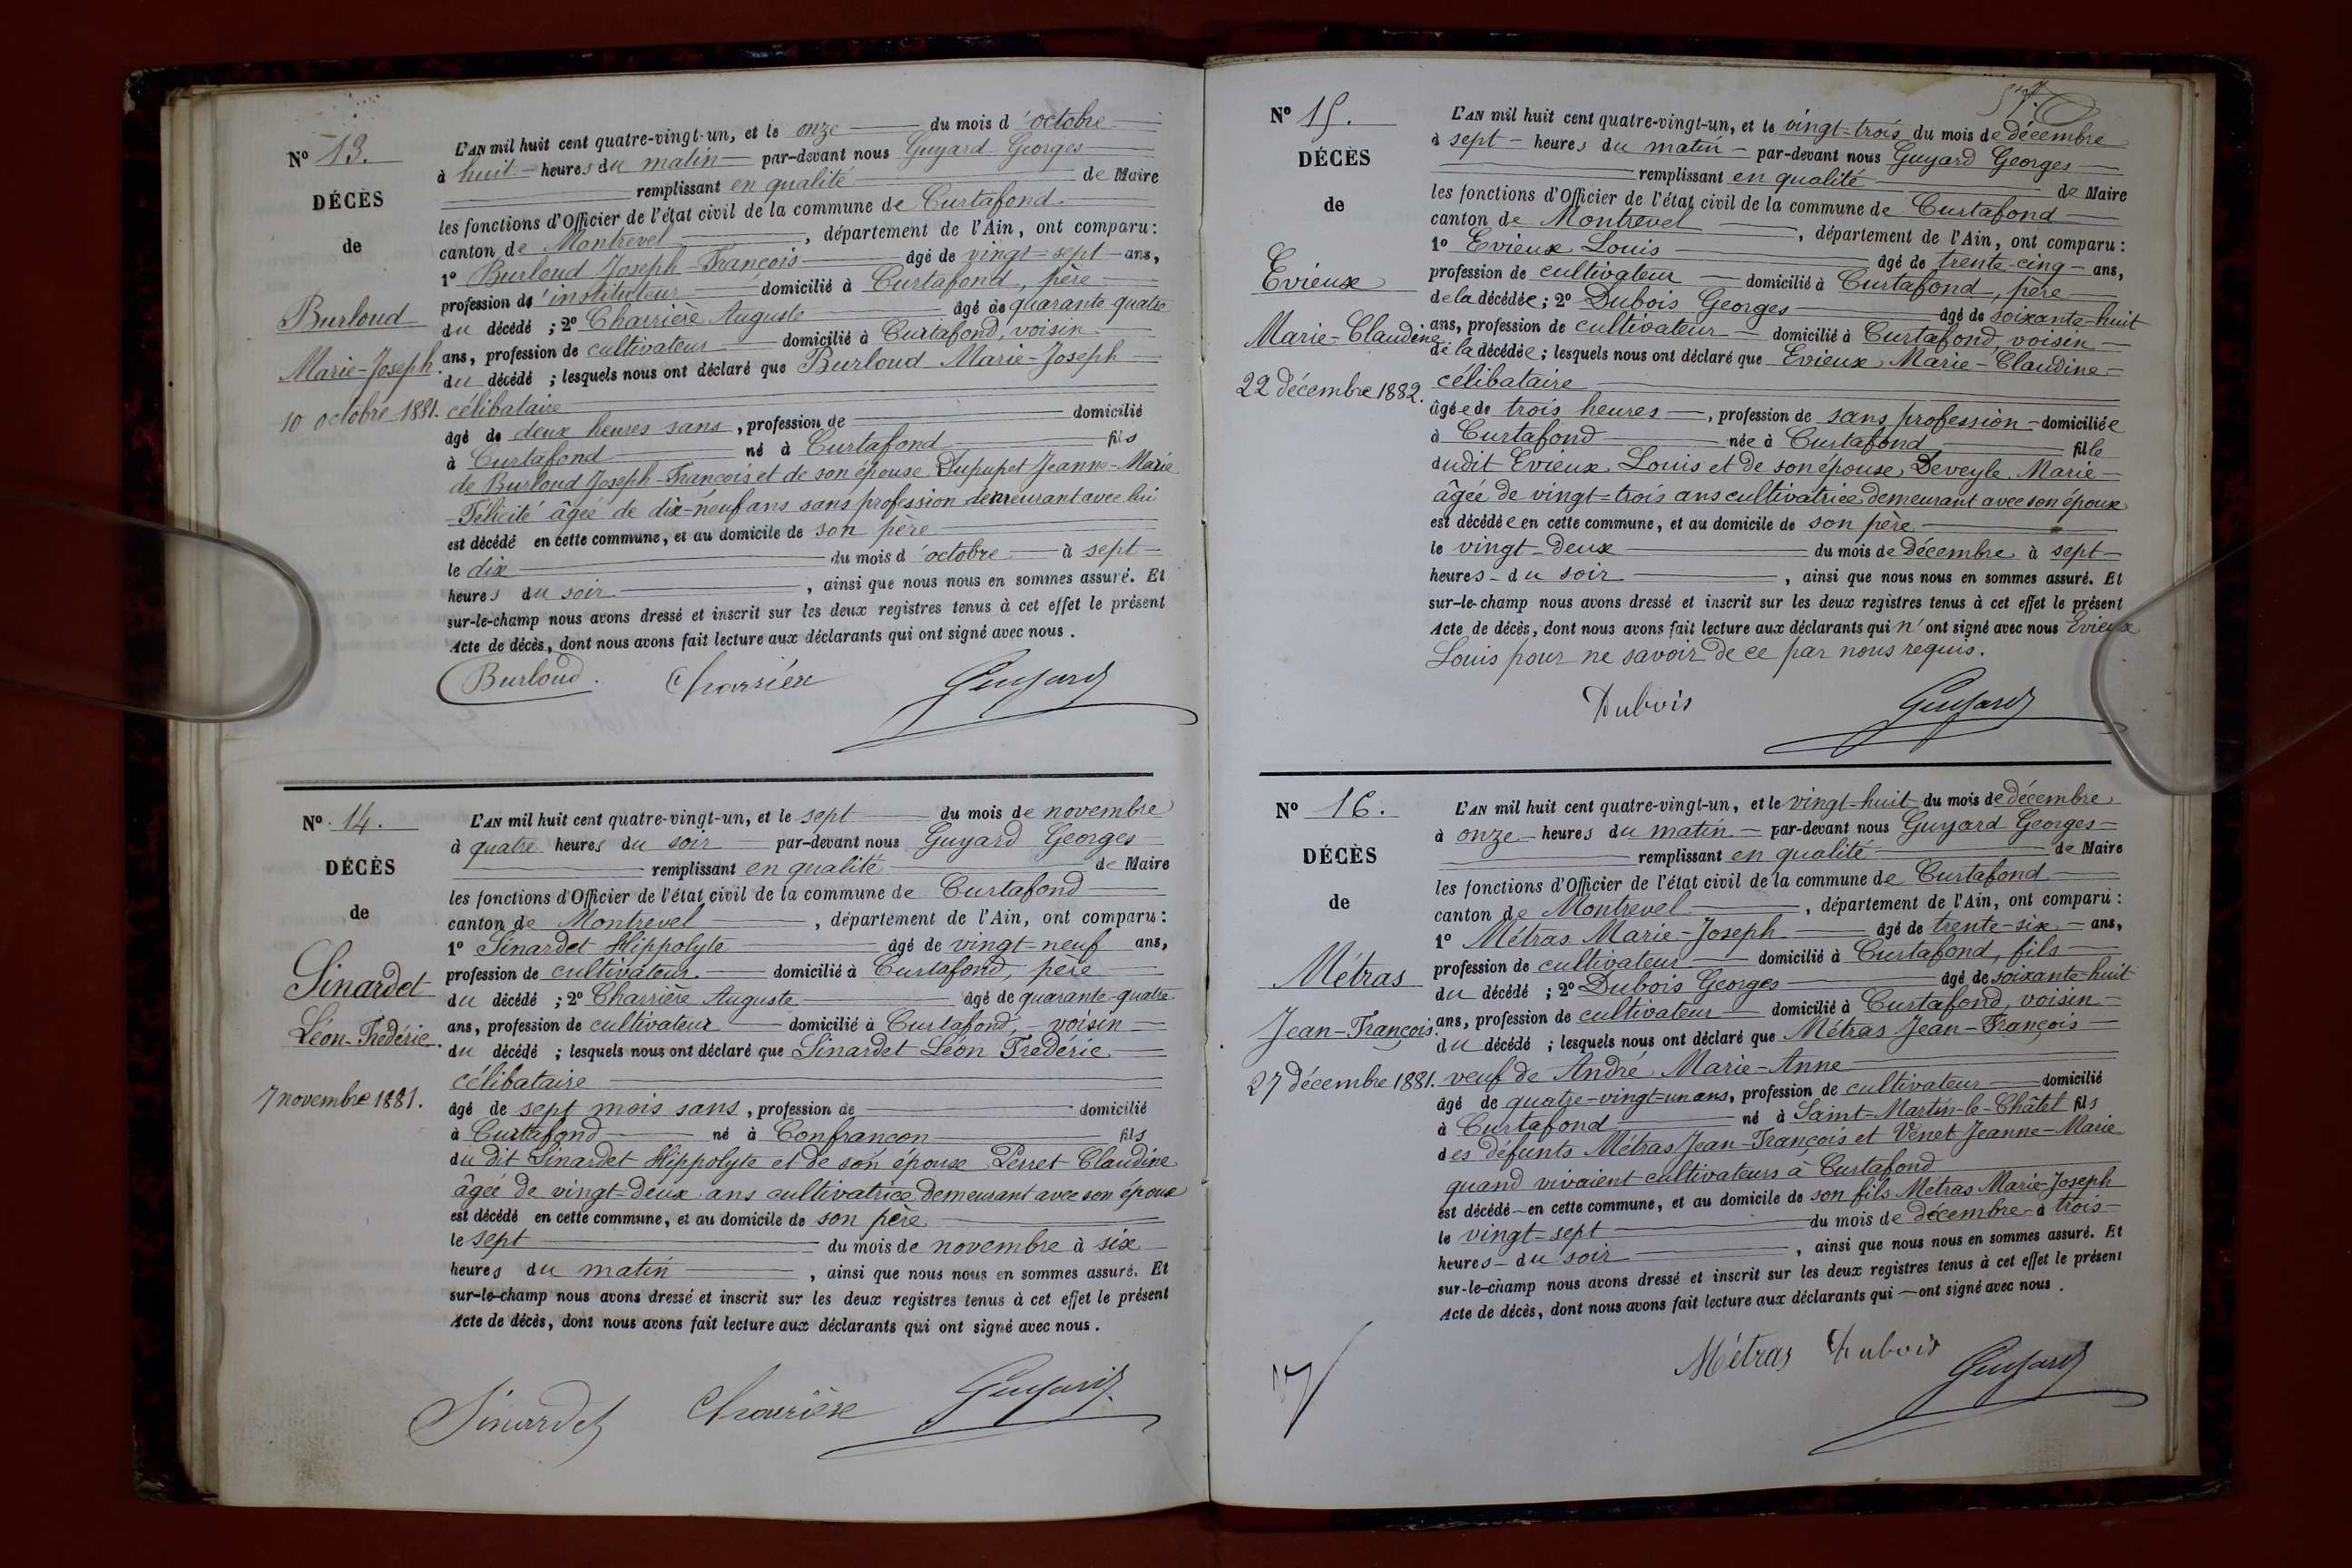 N° 13.
DÉCÈS
de
Burloud
Marie-Joseph.
10 octobre 1881.
L'AN mil huit cent quatre-vingt-un, et le onze du mois d'octobre
à huit heures du matin par-devant nous Guyard Georges
remplissant en qualité de Maire
les fonctions d'Officier de l'état civil de la commune de Curtafond
canton de Montrevel, département de l'Ain, ont comparu :
1° Burloud Joseph-François âgé de vingt-sept ans,
profession d'instituteur domicilié à Curtafond, père
du décédé ; 2° Charrière Auguste âgé de quarante-quatre
ans, profession de cultivateur domicilié à Curtafond, voisin
du décédé ; lesquels nous ont déclaré que Burloud Marie-Joseph
célibataire
âgé de deux heures sans, profession de domicilié
à Curtafond né à Curtafond fils
de Burloud Joseph-François et de son épouse Dupupet Jeanne-Marie
-Félicité âgée de dix-neuf ans sans profession demeurant avec lui
est décédé en cette commune, et au domicile de son père
le dix du mois d'octobre à sept
heures du soir, ainsi que nous nous en sommes assuré. Et
sur-le-champ nous avons dressé et inscrit sur les deux registres tenus à cet effet le présent
Acte de décès, dont nous avons fait lecture aux déclarants qui ont signé avec nous.
Burloud. Charrière Guyard
N° 14.
DÉCÈS
de
Sinardet
Léon-Frédéric.
7 novembre 1881.
L'AN mil huit cent quatre-vingt-un, et le sept du mois de novembre
à quatre heures du soir par-devant nous Guyard Georges
remplissant en qualité de Maire
les fonctions d'Officier de l'état civil de la commune de Curtafond
canton de Montrevel, département de l'Ain, ont comparu :
1° Sinardet Hippolyte âgé de vingt-neuf ans,
profession de cultivateur domicilié à Curtafond, père
du décédé ; 2° Charrière Auguste âgé de quarante-quatre
ans, profession de cultivateur domicilié à Curtafond, voisin
du décédé ; lesquels nous ont déclaré que Sinardet Léon Frédéric
célibataire
âgé de sept mois sans, profession de domicilié
à Curtafond né à Confrançon fils
du dit Sinardet Hippolyte et de son épouse Perret Claudine
âgée de vingt-deux ans cultivatrice demeurant avec son époux
est décédé en cette commune, et au domicile de son père
le sept du mois de novembre à six
heures du matin, ainsi que nous nous en sommes assuré. Et
sur-le-champ nous avons dressé et inscrit sur les deux registres tenus à cet effet le présent
Acte de décès, dont nous avons fait lecture aux déclarants qui ont signé avec nous.
Sinardet Charrière Guyard
N° 15.
DÉCÈS
de
Evieux
Marie-Claudine
22 décembre 1882.
L'AN mil huit cent quatre-vingt-un, et le vingt-trois du mois de décembre
à sept heures du matin par-devant nous Guyard Georges
remplissant en qualité de Maire
les fonctions d'Officier de l'état civil de la commune de Curtafond
canton de Montrevel, département de l'Ain, ont comparu :
1° Evieux Louis âgé de trente-cinq ans,
profession de cultivateur domicilié à Curtafond, père
de la décédée ; 2° Dubois Georges âgé de soixante-huit
ans, profession de cultivateur domicilié à Curtafond voisin
de la décédée ; lesquels nous ont déclaré que Evieux Marie-Claudine
célibataire
âgée de trois heures, profession de sans profession domiciliée
à Curtafond née à Curtafond file
dudit Evieux Louis et de son épouse Deveyle Marie
âgée de vingt-trois ans cultivatrice demeurant avec son époux
est décédée en cette commune, et au domicile de son père
le vingt-deux du mois de décembre à sept
heures du soir, ainsi que nous nous en sommes assuré. Et
sur-le-champ nous avons dressé et inscrit sur les deux registres tenus à cet effet le présent
Acte de décès, dont nous avons fait lecture aux déclarants qui n'ont signé avec nous Evieux
Louis pour ne savoir de ce par nous requis.
Dubois Guyard
N° 16.
DÉCÈS
de
Métras
Jean-François.
27 décembre 1881.
L'AN mil huit cent quatre-vingt-un, et le vingt-huit du mois de décembre
à onze heures du matin par-devant nous Guyard Georges
remplissant en qualité de Maire
les fonctions d'Officier de l'état civil de la commune de Curtafond
canton de Montrevel, département de l'Ain, ont comparu :
1° Métras Marie-Joseph âgé de trente-six ans,
profession de cultivateur domicilié à Curtafond, fils
du décédé ; 2° Dubois Georges âgé de soixante-huit
ans, profession de cultivateur domicilié à Curtafond, voisin
du décédé ; lesquels nous ont déclaré que Métras Jean-François
veuf de André Marie-Anne
âgé de quatre-vingt-un ans, profession de cultivateur domicilié
à Curtafond né à Saint-Martin-le-Châtel fils
des défunts Métras Jean-François et Venet Jeanne-Marie
quand vivaient cultivateurs à Curtafond
est décédé en cette commune, et au domicile de son fils Métras Marie-Joseph
le vingt-sept du mois de décembre à trois
heures du soir, ainsi que nous nous en sommes assuré. Et
sur-le-champ nous avons dressé et inscrit sur les deux registres tenus à cet effet le présent
Acte de décès, dont nous avons fait lecture aux déclarants qui ont signé avec nous.
Métras Dubois Guyard